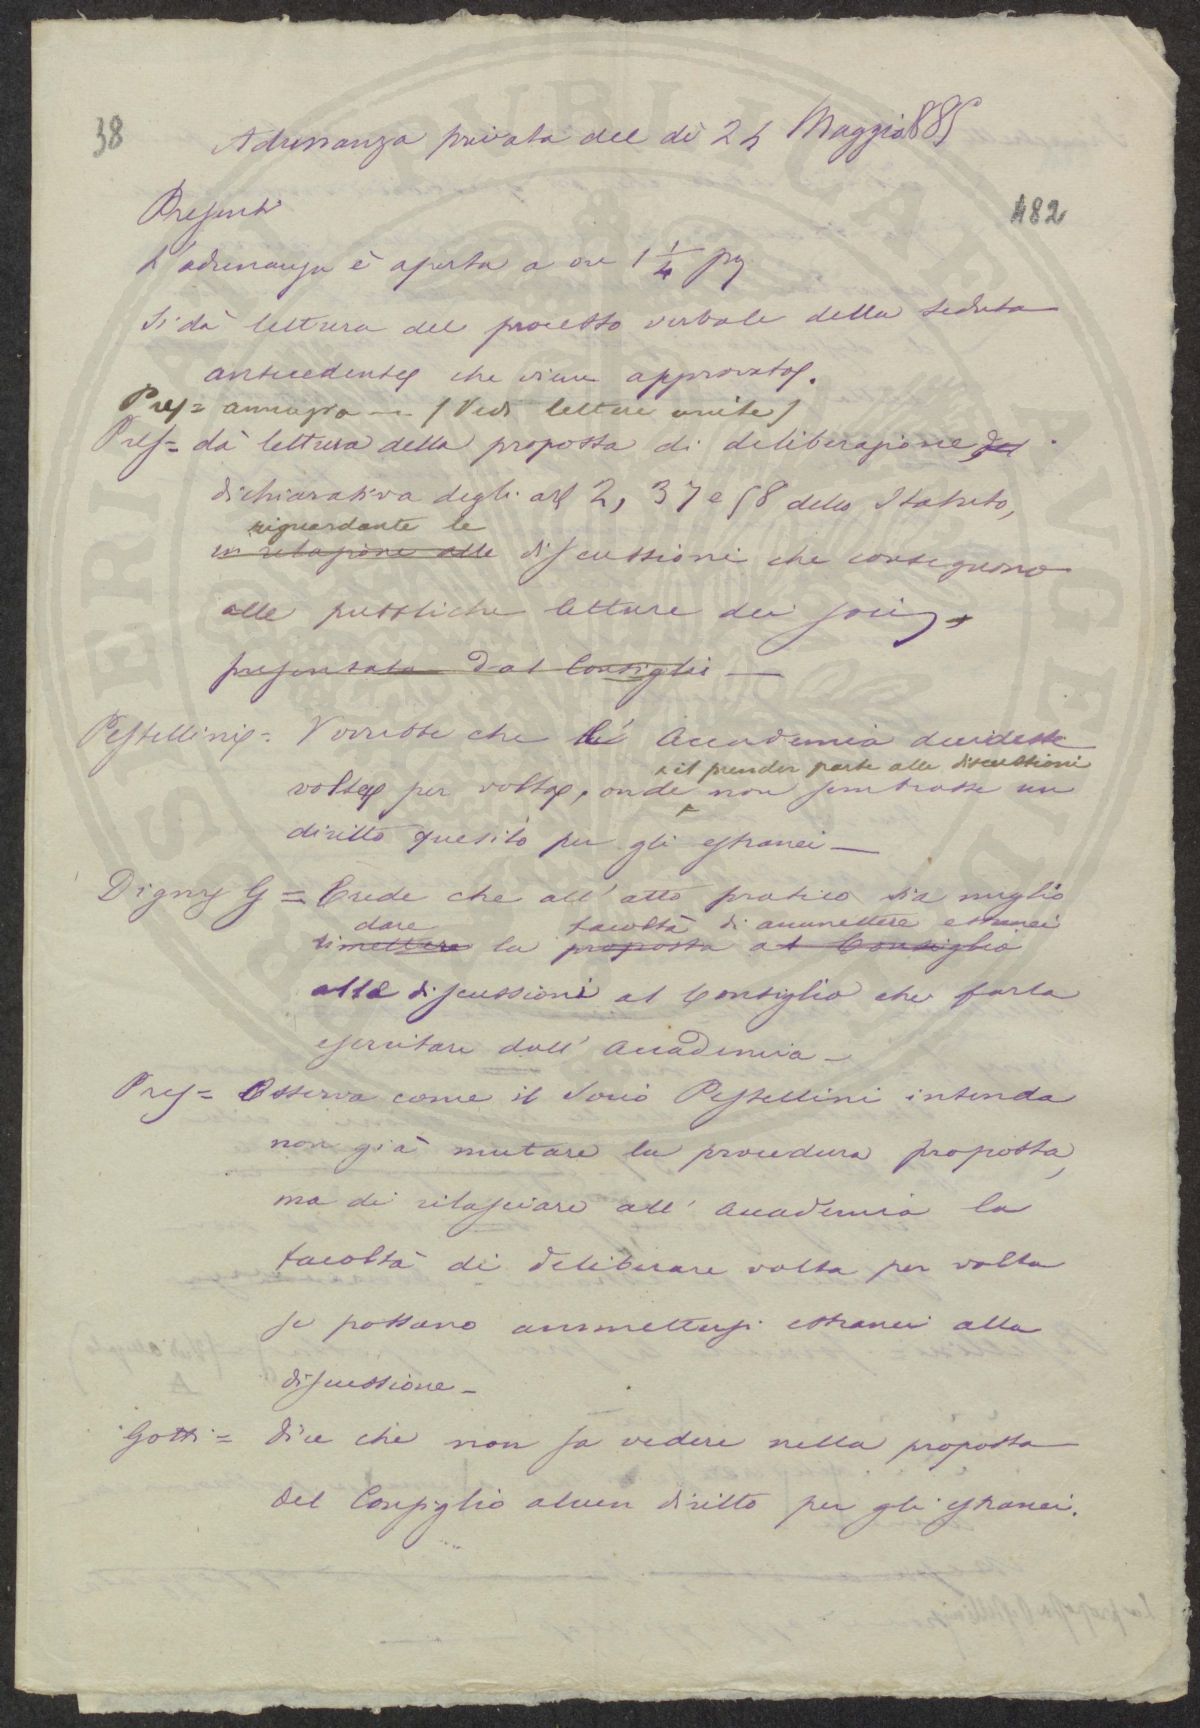 38
Adunanza privata del dì 24 Maggio 1885
482
Presenti
L'adunanza è aperta a ore 1 1/4 pom
Si dà lettura del processo verbale della seduta
antecedente che viene approvato.
Pres = annunzia — (Vedi lettere unite)
Pres = dà lettura della proposta di deliberazione
dichiarativa degli art 2, 37 e 58 dello Statuto,
riguardante le
in relazione alle discussioni che conseguono
alle pubbliche letture dei soci,
presentata dal Consiglio —
Pestellini = Vorrebbe che l'Accademia decidesse
il prender parte alle discussioni
volta per volta, onde non sembrasse un
diritto quesito per gli estranei —
Digny G = Crede che all'atto pratico sia meglio
dare facoltà di ammettere estranei
rimettere la proposta al Consiglio
alle discussioni al Consiglio che farla
esercitare dall'Accademia —
Pres = Osserva come il Socio Pestellini intenda
non già mutare la procedura proposta,
ma di rilasciare all'Accademia la
facoltà di deliberare volta per volta
se possano ammettersi estranei alla
discussione —
Gotti = Dice che non sa vedere nella proposta
del Consiglio alcun diritto per gli estranei.